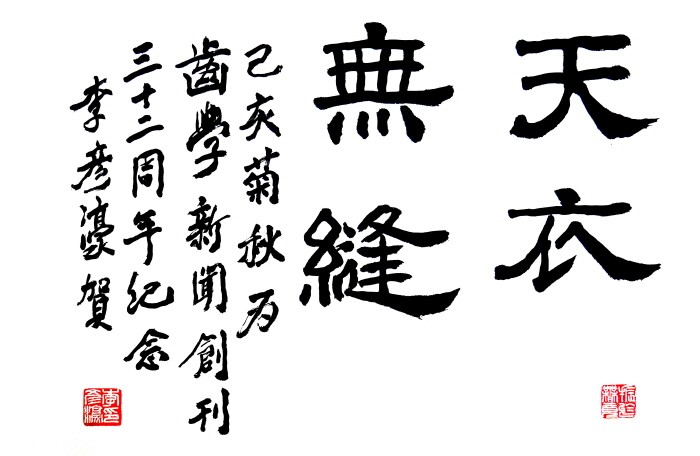 天衣
無縫
己亥菊秋為
齒學新聞創刊
三十二周年紀念
李彥濠賀